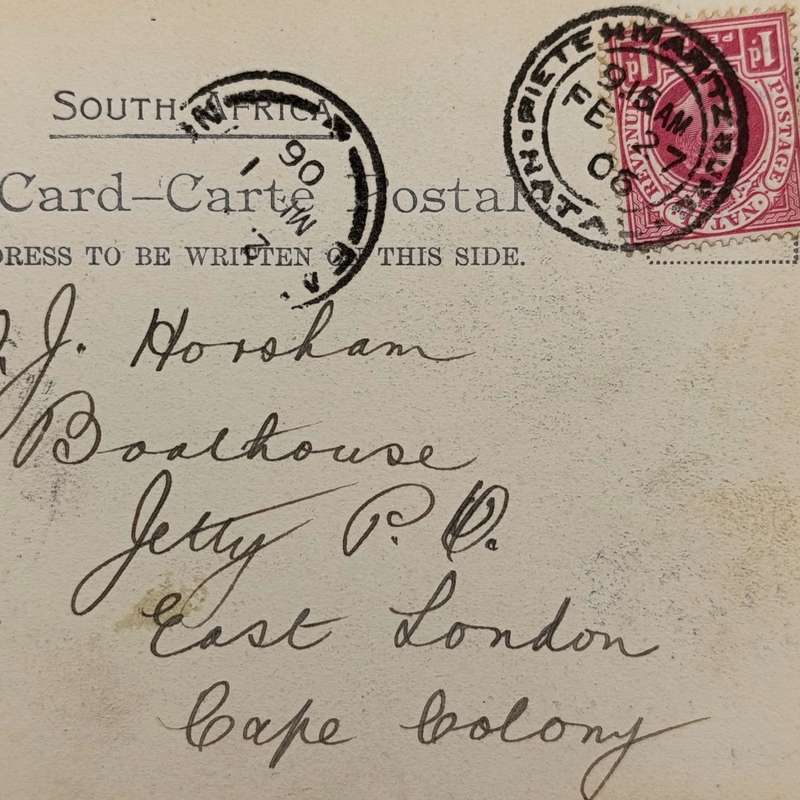 SOUTH AFRICA
Card–Carte Postal
DRESS TO BE WRITTEN ON THIS SIDE.
PIETERMARITZBURG
9.15 AM
FE 27
06
NATAL
1d 1d
POSTAGE
REVENUE
06
MR
J. Horsham
Boathouse
Jetty P. O.
East London
Cape Colony